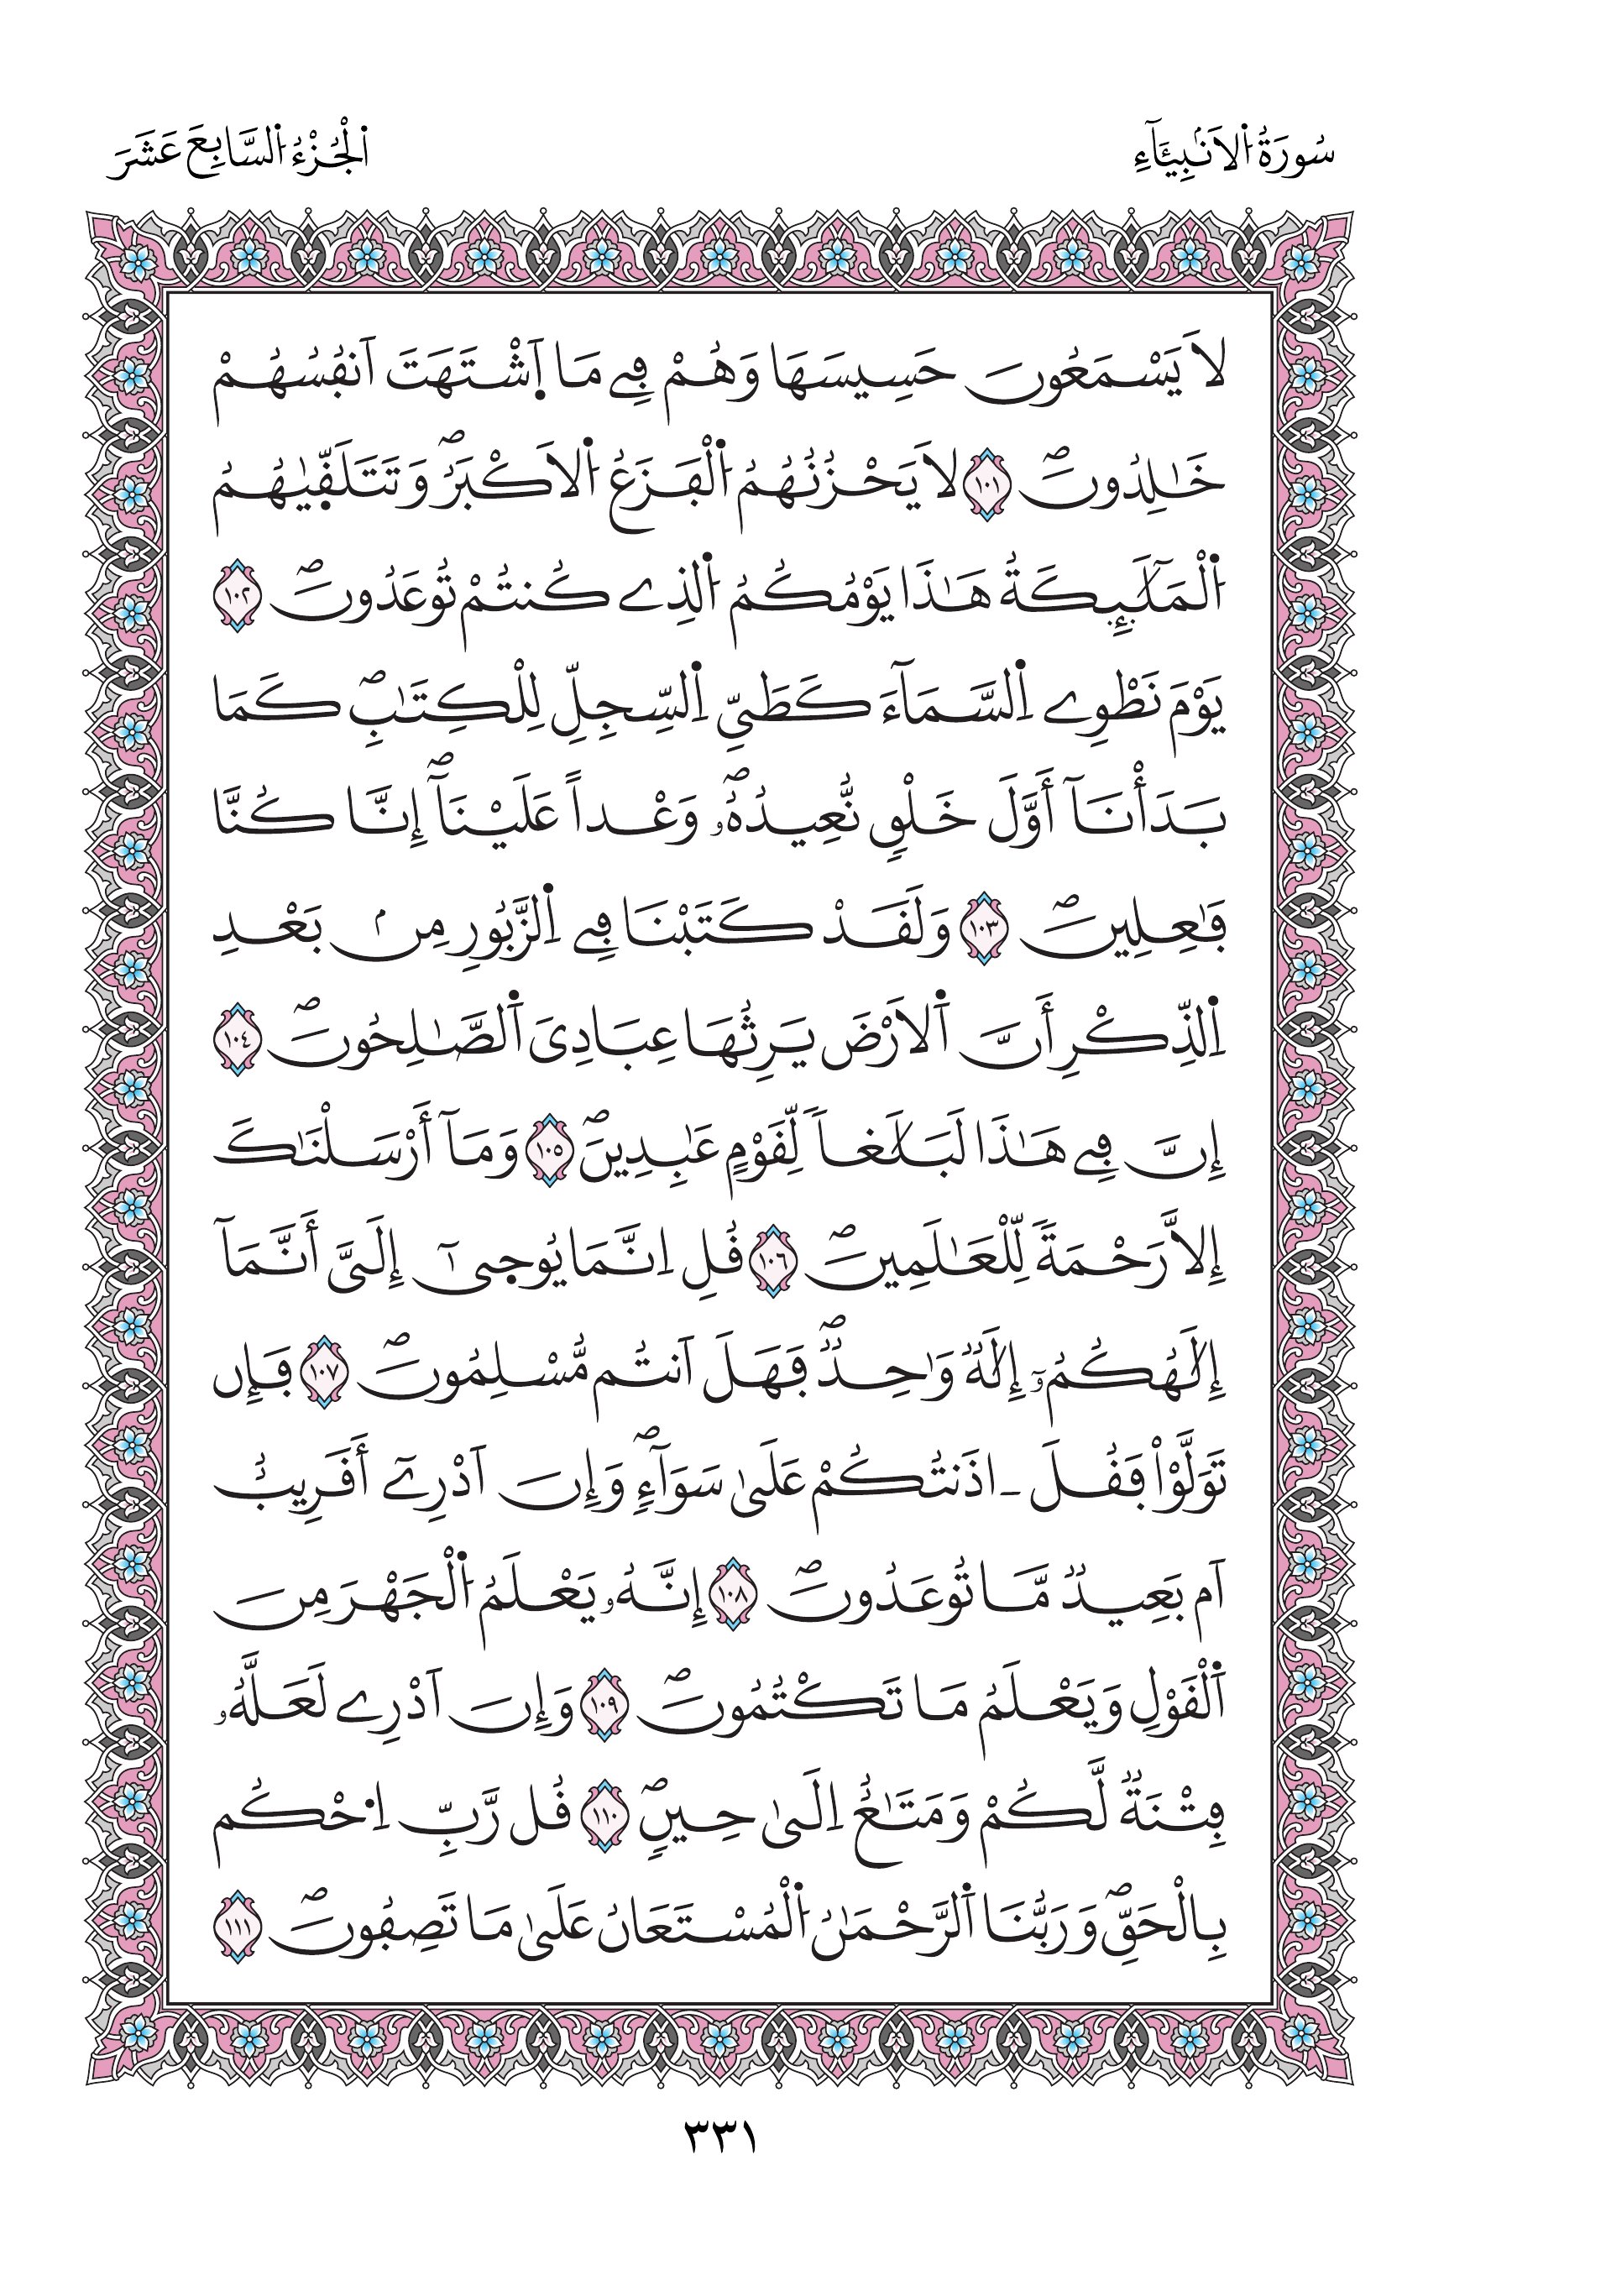 سُورَةُ اُ۬لَانۢبِيَآءِ
اَ۬لْجُزْءُ اُ۬لسَّابِعَ عَشَرَ
لَا يَسْمَعُونَ حَسِيسَهَا وَهُمْ فِے مَا اَ۪شْتَهَتَ اَنفُسُهُمْ
خَٰلِدُونَۖ ١٠١ لَا يَحْزُنُهُمُ اُ۬لْفَزَعُ اُ۬لَاكْبَرُۖ وَتَتَلَقّ۪يٰهُمُ
اُ۬لْمَلَٰٓئِكَةُ هَٰذَا يَوْمُكُمُ اُ۬لذِے كُنتُمْ تُوعَدُونَۖ ١٠٢
يَوْمَ نَطْوِے اِ۬لسَّمَآءَ كَطَيِّ اِ۬لسِّجِلِّ لِلْكِتَٰبِۖ كَمَا
بَدَأْنَآ أَوَّلَ خَلْقٖ نُّعِيدُهُۥۖ وَعْداً عَلَيْنَآۖ إِنَّا كُنَّا
فَٰعِلِينَۖ ١٠٣ وَلَقَدْ كَتَبْنَا فِے اِ۬لزَّبُورِ مِنۢ بَعْدِ
اِ۬لذِّكْرِ أَنَّ اَ۬لَارْضَ يَرِثُهَا عِبَادِيَ اَ۬لصَّٰلِحُونَۖ ١٠٤
إِنَّ فِے هَٰذَا لَبَلَٰغاٗ لِّقَوْمٍ عَٰبِدِينَۖ ١٠٥ وَمَآ أَرْسَلْنَٰكَ
إِلَّا رَحْمَةٗ لِّلْعَٰلَمِينَۖ ١٠٦ قُلِ اِنَّمَا يُوح۪يٰٓ إِلَيَّ أَنَّمَآ
إِلَٰهُكُمُۥٓ إِلَٰهٞ وَٰحِدٞۖ فَهَلَ اَنتُم مُّسْلِمُونَۖ ١٠٧ فَإِن
تَوَلَّوْاْ فَقُلَ ـ اذَنتُكُمْ عَلَىٰ سَوَآءٖۖ وَإِنَ اَدْرِےٓ أَقَرِيبٌ
اَم بَعِيدٞ مَّا تُوعَدُونَۖ ١٠٨ إِنَّهُۥ يَعْلَمُ اُ۬لْجَهْرَ مِنَ
اَ۬لْقَوْلِ وَيَعْلَمُ مَا تَكْتُمُونَۖ ١٠٩ وَإِنَ اَدْرِے لَعَلَّهُۥ
فِتْنَةٞ لَّكُمْ وَمَتَٰعٌ اِلَىٰ حِينٖۖ ١١٠ قُل رَّبِّ اِ۟حْكُم
بِالْحَقِّۖ وَرَبُّنَا اَ۬لرَّحْمَٰنُ اُ۬لْمُسْتَعَانُ عَلَىٰ مَا تَصِفُونَۖ ١١١
٣٣١